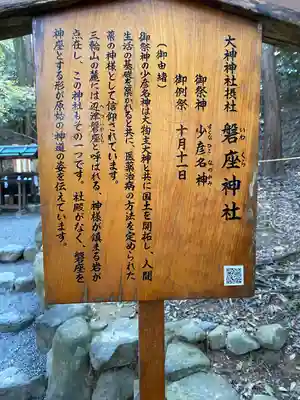 大神神社摂社
磐座神社
いわ くら
御祭神 少彦名神
すくな ひこ なの かみ
御例祭 十月十一日
(御由緒)
御祭神の少彦名神は大物主大神と共に国土を開拓し、人間
生活の基礎を築かれると共に、医薬治病の方法を定められた
薬の神様として信仰されています。
三輪山の麓には辺津磐座と呼ばれる、神様が鎮まる岩が
点在し、この神社もその一つです。社殿がなく、磐座を
神座とする形が原始の神道の姿を伝えています。